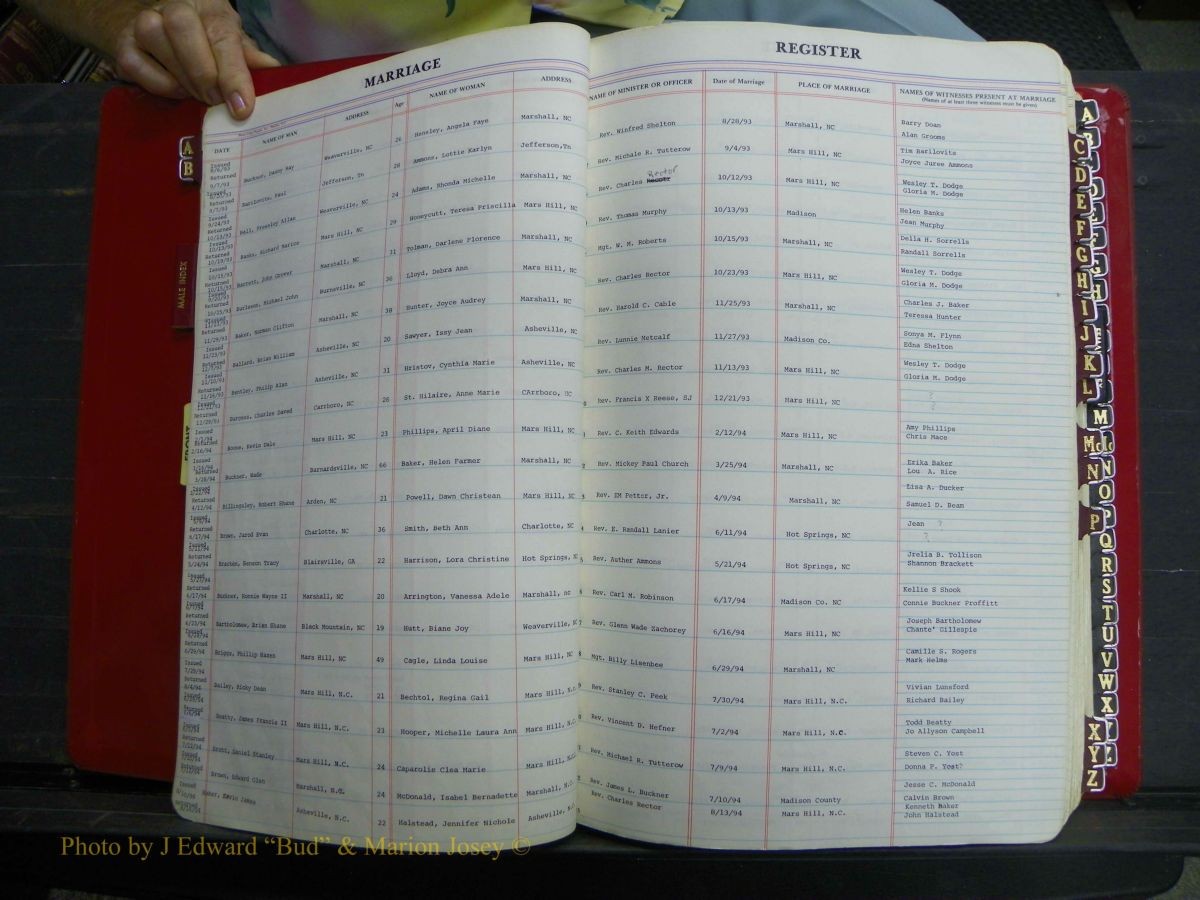 MARRIAGE
REGISTER
DATE NAME OF MAN ADDRESS Age NAME OF WOMAN ADDRESS NAME OF MINISTER OR OFFICER Date of Marriage PLACE OF MARRIAGE NAMES OF WITNESSES PRESENT AT MARRIAGE
(Names of at least three witnesses must be given)
Buckner, Danny Ray Weaverville, NC 26 Hensley, Angela Faye Marshall, NC Rev. Winfred Shelton 8/28/93 Marshall, NC Barry Doan
Alan Grooms
Barilovits, Paul Jefferson, Tn 28 Ammons, Lottie Karlyn Jefferson,Tn Rev. Michale R. Tutterow 9/4/93 Mars Hill, NC Tim Barilovits
Joyce Juree Ammons
Bell, Pressley Allan Weaverville, NC 24 Adams, Rhonda Michelle Marshall, NC Rev. Charles Rector 10/12/93 Mars Hill, NC Wesley T. Dodge
Gloria M. Dodge
Banks, Richard Marion Mars Hill, NC 29 Honeycutt, Teresa Priscilla Mars Hill, NC Rev. Thomas Murphy 10/13/93 Madison Helen Banks
Jean Murphy
Barrett, John Grover Marshall, NC 31 Tolman, Darlene Florence Marshall, NC Mgt. W. M. Roberts 10/15/93 Marshall, NC Della H. Sorrells
Randall Sorrells
Burleson, Michael John Burnsville, NC 30 Lloyd, Debra Ann Mars Hill, NC Rev. Charles Rector 10/23/93 Mars Hill, NC Wesley T. Dodge
Gloria M. Dodge
Baker, Norman Clifton Marshall, NC 38 Hunter, Joyce Audrey Marshall, NC Rev. Harold C. Cable 11/25/93 Marshall, NC Charles J. Baker
Teressa Hunter
Ballard, Brian William Asheville, NC 20 Sawyer, Issy Jean Asheville, NC Rev. Lunnie Metcalf 11/27/93 Madison Co. Sonya M. Flynn
Edna Shelton
Bentley, Philip Alan Asheville, NC 31 Hristov, Cynthia Marie Asheville, NC Rev. Charles M. Rector 11/13/93 Mars Hill, NC Wesley T. Dodge
Gloria M. Dodge
Burgess, Charles Carrboro, NC 26 St. Hilaire, Anne Marie CArrboro, NC Rev. Francis X Reese, SJ 12/21/93 Mars Hill, NC ?
?
Boone, Kevin Dale Mars Hill, NC 23 Phillips, April Diane Mars Hill, NC Rev. C. Keith Edwards 2/12/94 Mars Hill, NC Amy Phillips
Chris Mace
Buckner, Wade Barnardsville, NC 66 Baker, Helen Farmer Marshall, NC Rev. Mickey Paul Church 3/25/94 Marshall, NC Erika Baker
Lou A. Rice
Billingsley, Robert Shane Arden, NC 21 Powell, Dawn Christean Mars Hill, NC Rev. EM Petter, Jr. 4/9/94 Marshall, NC Lisa A. Ducker
Samuel D. Beam
Brown, Jarod Evan Charlotte, NC 36 Smith, Beth Ann Charlotte, NC Rev. E. Randall Lanier 6/11/94 Hot Springs, NC Jean ?
?
Bracken, Benson Tracy Blairsville, GA 22 Harrison, Lora Christine Hot Springs, NC Rev. Auther Ammons 5/21/94 Hot Springs, NC Jrelia B. Tollison
Shannon Brackett
Buckner, Ronnie Wayne II Marshall, NC 20 Arrington, Vanessa Adele Marshall, nc Rev. Carl M. Robinson 6/17/94 Madison Co. NC Kellie S Shook
Connie Buckner Proffitt
Bartholomew, Brian Shane Black Mountain, NC 19 Hutt, Biane Joy Weaverville, NC Rev. Glenn Wade Zachorey 6/16/94 Mars Hill, NC Joseph Bartholomew
Chante' Gillespie
Briggs, Phillip Hazen Mars Hill, NC 49 Cagle, Linda Louise Mars Hill, NC Mgt. Billy Lisenbee 6/29/94 Marshall, NC Camille S. Rogers
Mark Helms
Bailey, Ricky Dean Mars Hill, N.C. 21 Bechtol, Regina Gail Mars Hill, N.C. Rev. Stanley C. Peek 7/30/94 Mars Hill, N.C. Vivian Lunsford
Richard Bailey
Beatty, James Francis II Mars Hill, N.C. 23 Hooper, Michelle Laura Ann Mars Hill, N.C. Rev. Vincent D. Hefner 7/2/94 Mars Hill, N.C. Todd Beatty
Jo Allyson Campbell
Daniel Stanley Mars Hill, N.C. 24 Caparolie Clea Marie Mars Hill, N.C. Rev. Michael R. Tutterow 7/9/94 Mars Hill, N.C. Steven C. Yost
Donna P. Yost?
Brown, Edward Glen Marshall, N.C. 24 McDonald, Isabel Bernadette Marshall, N.C. Rev. James L. Buckner 7/10/94 Madison County Jesse C. McDonald
Calvin Brown
Baker, Kevin James Asheville, N.C. 22 Halstead, Jennifer Nichole Asheville, N.C. Rev. Charles Rector 8/13/94 Mars Hill, N.C. Kenneth Baker
John Halstead
A
B
MALE INDEX
FRONT
A
C
D
E
F
G
H
I
J
K
L
M
M Mc
N N
O
P P
Q
R
S
T
U
V
W
X
Y
Z
XYZ
Photo by J Edward “Bud” & Marion Josey ©